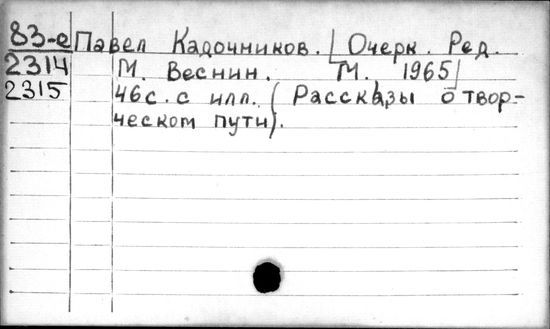 83-е Павел Кадочников. [Очерк. Ред.
2314 М. Веснин. М. 1965]
2315 46с. с илл. (Рассказы о твор-
ческом пути).